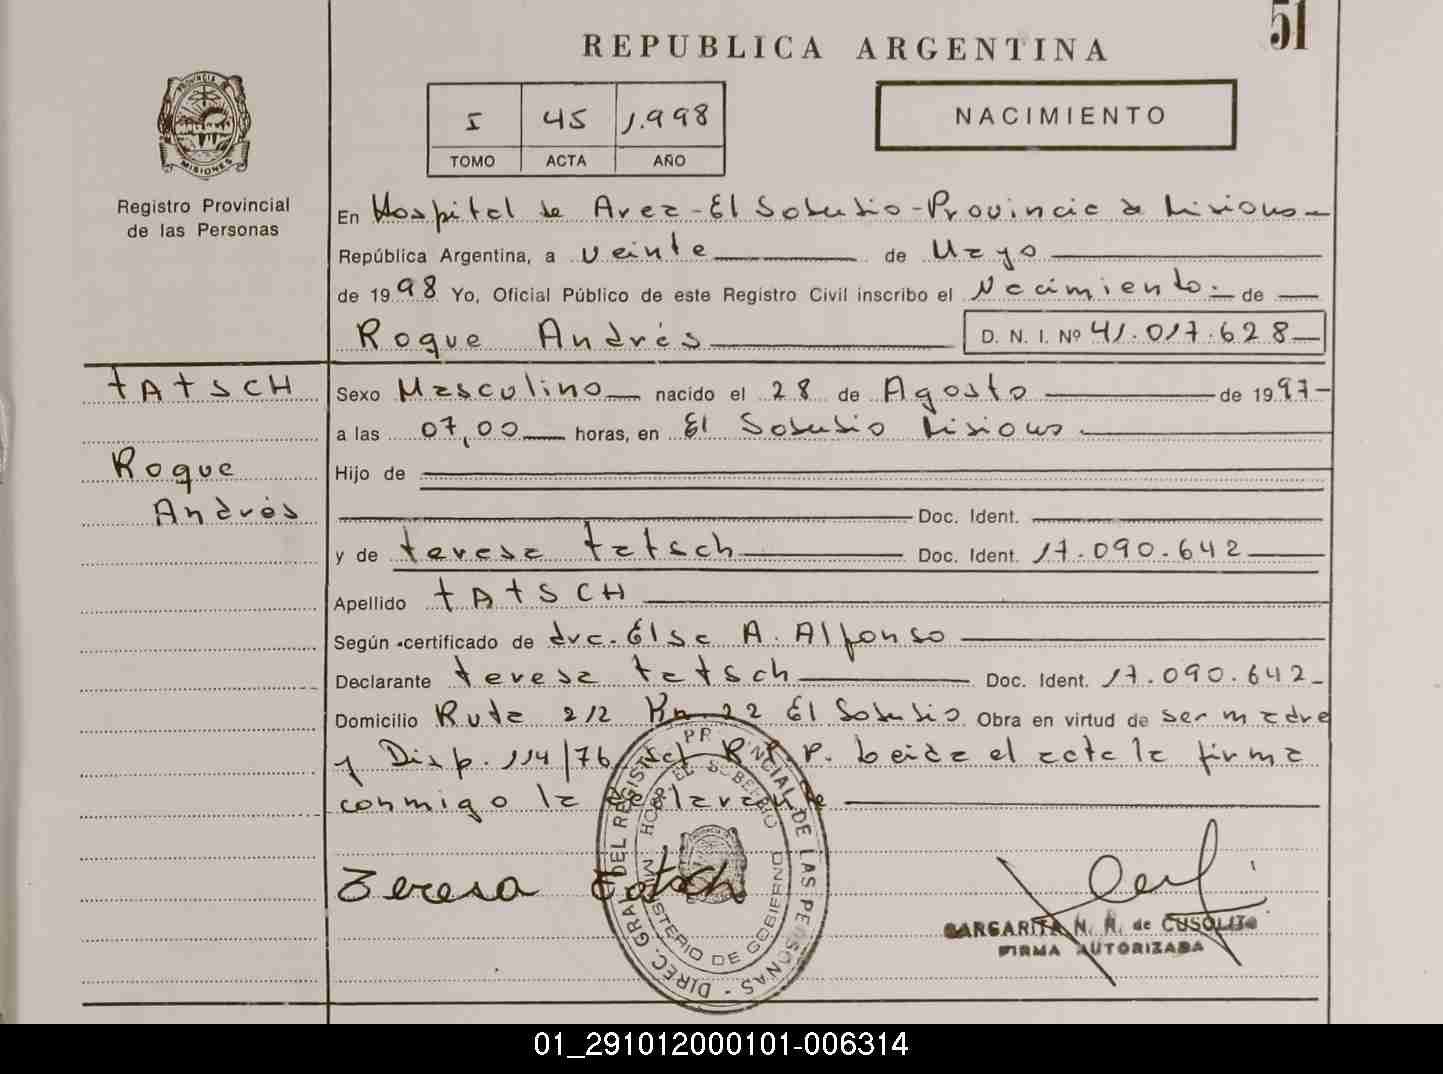 51
REPUBLICA ARGENTINA
PROVINCIA
MISIONES
Registro Provincial
de las Personas
I 45 1.998
TOMO ACTA AÑO
NACIMIENTO
En Hospital de Area - El Soberbio - Provincia de Misiones
República Argentina, a veinte de Mayo
de 1998 Yo, Oficial Público de este Registro Civil inscribo el Nacimiento. de
Roque Andrés D. N. I. Nº 41.017.628
TATSCH
Roque
Andrés
Sexo Masculino nacido el 28 de Agosto de 1997
a las 07,00 horas, en El Soberbio Misiones
Hijo de
Doc. Ident.
y de Teresa Tatsch Doc. Ident. 17.090.642
Apellido TATSCH
Según certificado de dra. Elsa A. Alfonso
Declarante Teresa Tatsch Doc. Ident. 17.090.642
Domicilio Ruta 212 Km. 22 El Soberbio Obra en virtud de ser madre
y Disp. 114/76 del R.P.P. Leida el acta la firma
conmigo la declarante
Teresa Tatsch
DIREC. GRAL. DEL REGISTRO PROVINCIAL DE LAS PERSONAS
HOSP. EL SOBERBIO
MINISTERIO DE GOBIERNO
MARGARITA N. R. de CUSOLITO
FIRMA AUTORIZADA
01_291012000101-006314